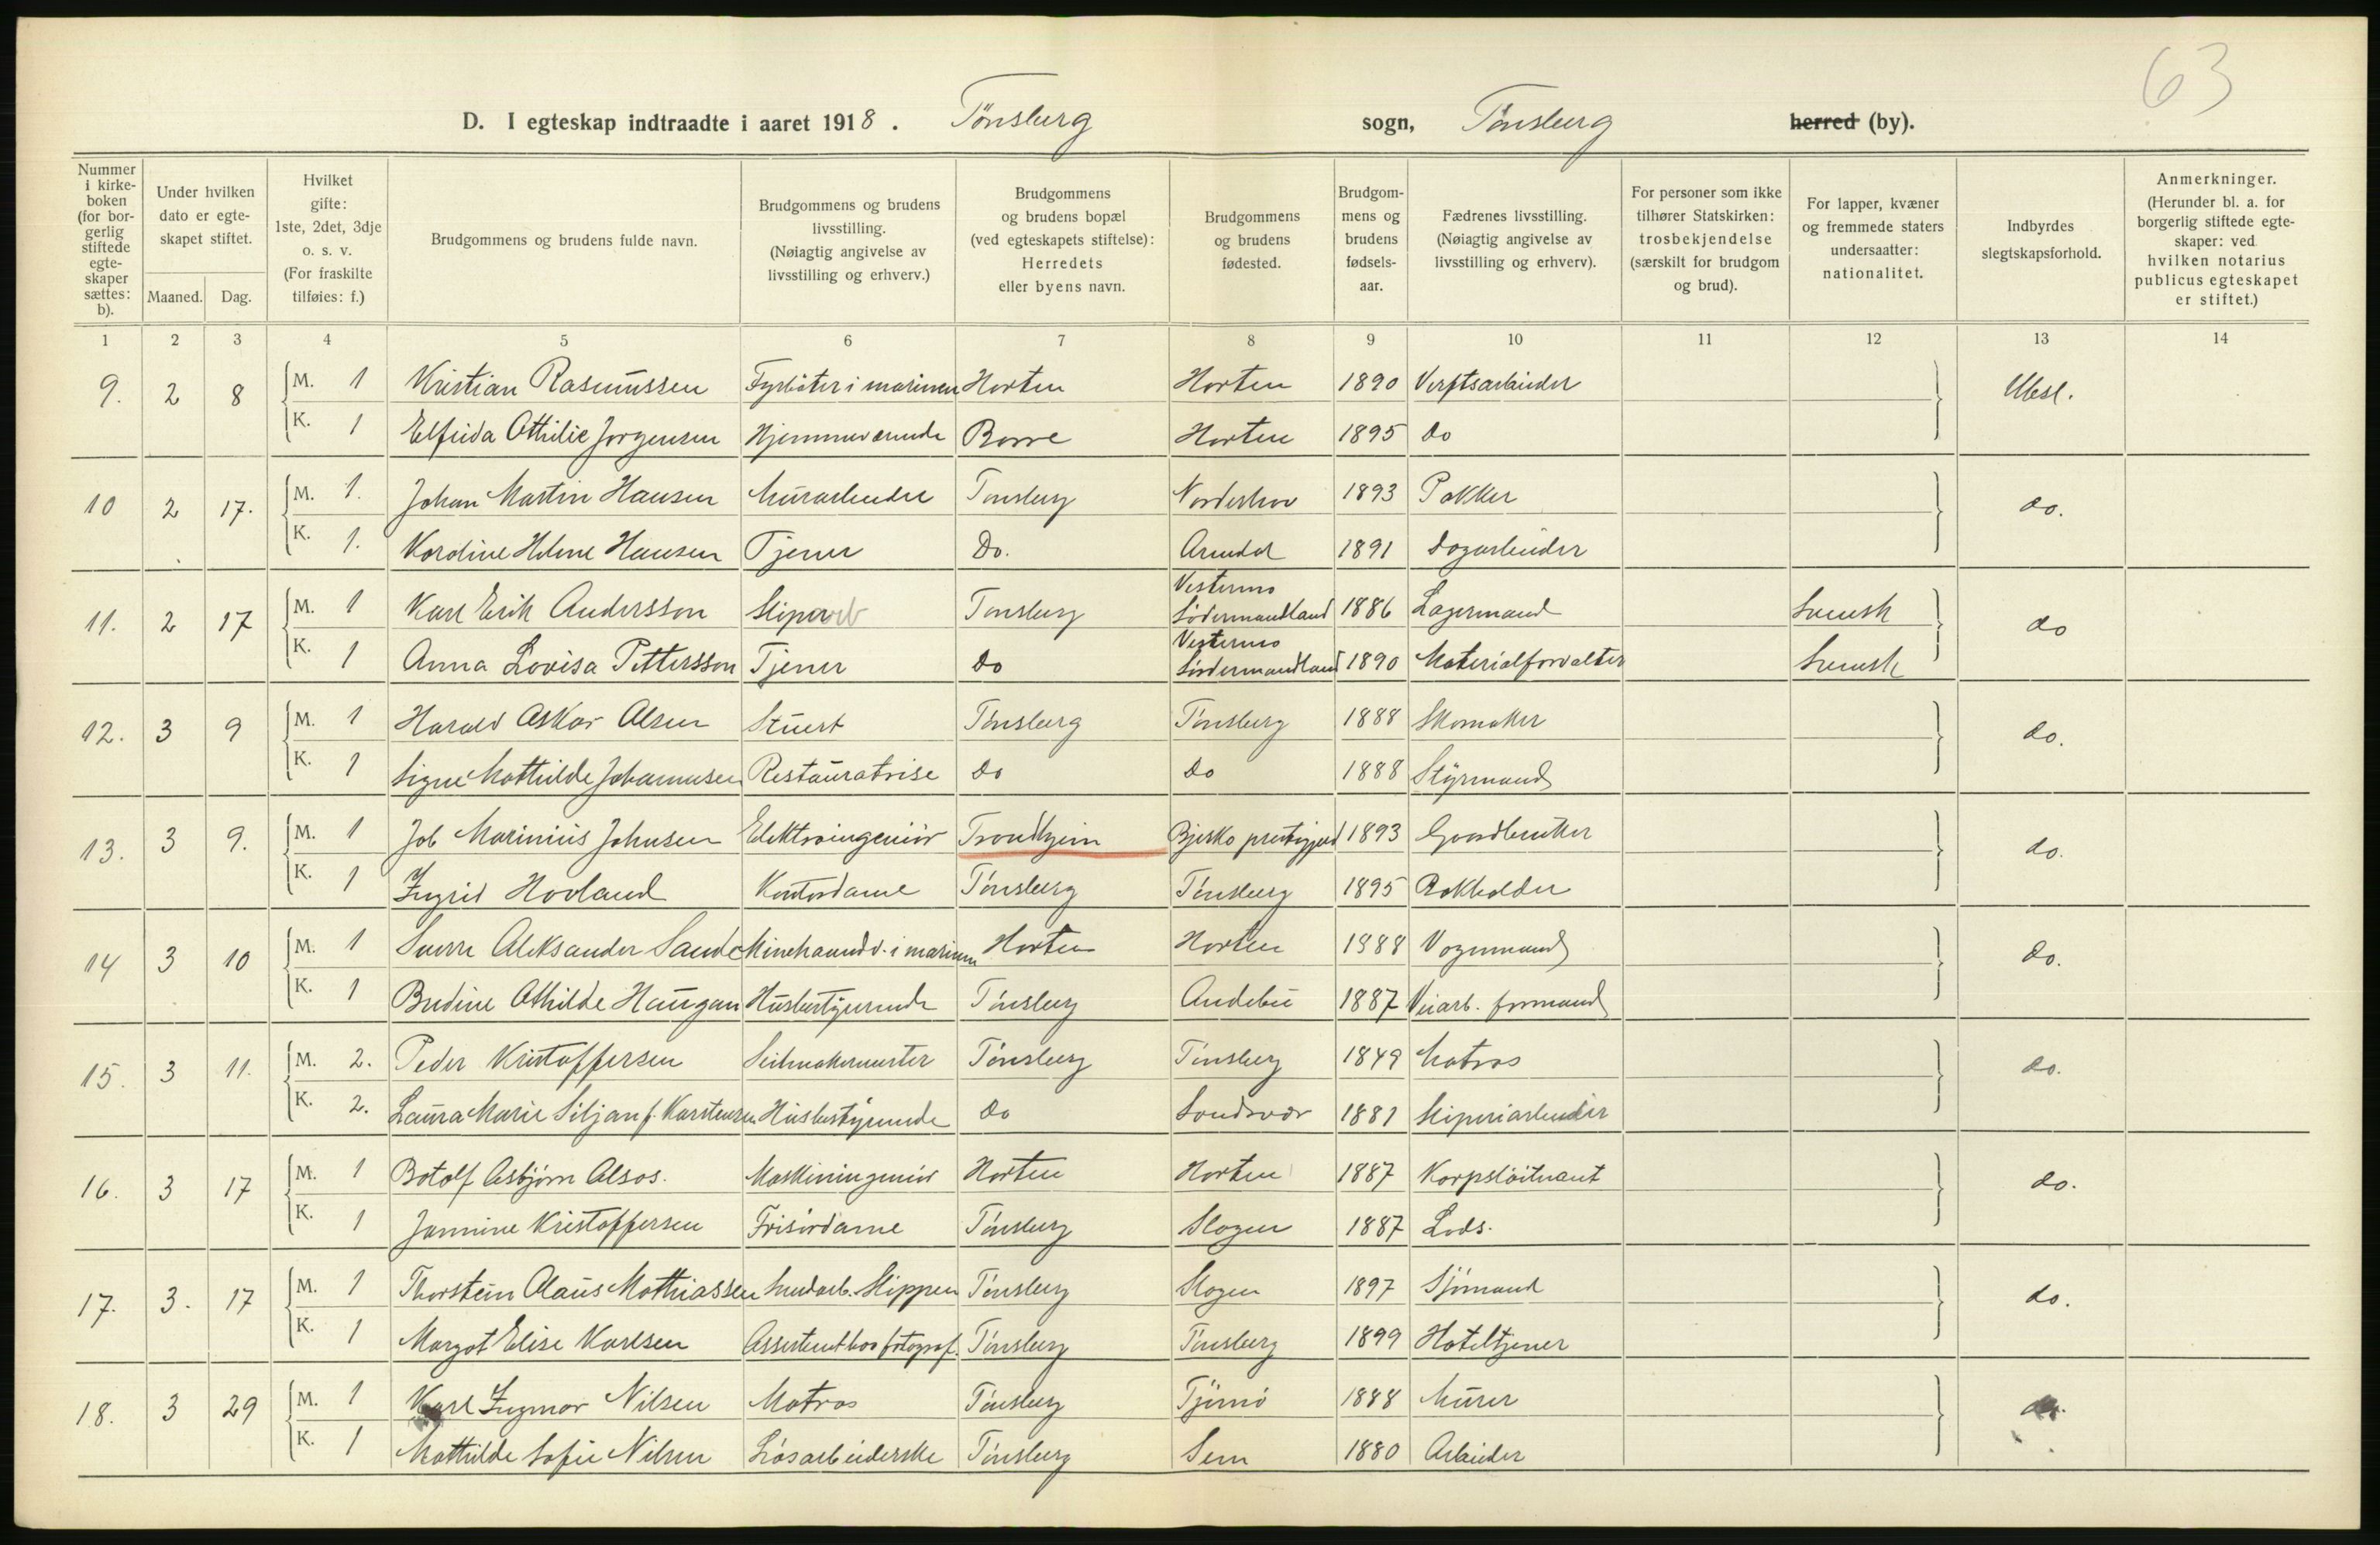 63
D. I egteskap indtraadte i aaret 1918. Tønsberg sogn, Tønsberg herred (by).
Nummer i kirkeboken (for borgerlig stiftede egteskaper sættes: b).
Under hvilken dato er egteskapet stiftet.
Maaned. Dag.
Hvilket gifte: 1ste, 2det, 3dje o. s. v. (For fraskilte tilføies: f.)
Brudgommens og brudens fulde navn.
Brudgommens og brudens livsstilling. (Nøiagtig angivelse av livsstilling og erhverv.)
Brudgommens og brudens bopæl (ved egteskapets stiftelse): Herredets eller byens navn.
Brudgommens og brudens fødested.
Brudgommens og brudens fødselsaar.
Fædrenes livsstilling. (Nøiagtig angivelse av livsstilling og erhverv).
For personer som ikke tilhører Statskirken: trosbekjendelse (særskilt for brudgom og brud).
For lapper, kvæner og fremmede staters undersaatter: nationalitet.
Indbyrdes slegtskapsforhold.
Anmerkninger. (Herunder bl. a. for borgerlig stiftede egteskaper: ved hvilken notarius publicus egteskapet er stiftet.)
1 2 3 4 5 6 7 8 9 10 11 12 13 14
9. 2 8 M. 1 Kristian Rasmussen Fyrbøter i marinen Horten Horten 1890 Verftsarbeider Ubesl.
K. 1 Elfrida Othilie Jørgensen Hjemmeværende Borre Horten 1895 do
10 2 17. M. 1. Johan Martin Hansen Murarbeider Tønsberg Norderhov 1893 Pakker do.
K. 1. Karoline Helene Hansen Tjener Do. Arendal 1891 Dagarbeider
11. 2 17 M. 1 Karl Erik Andersson Sliperarb Tønsberg Vestermo Södermandland 1886 Lagermand Svensk do
K. 1 Anna Lovisa Pettersson Tjener Do Vestermo Södermandland 1890 Materialforvalter Svensk
12. 3 9 M. 1 Harald Oskar Olsen Stuert Tønsberg Tønsberg 1888 Skomaker do.
K. 1 Signe Mathilde Johannesen Restauratrise Do Do 1888 Styrmand
13. 3 9. M. 1 Job Marinius Johnsen Elektroingeniør Trondhjem Bjerkø prestegjeld 1893 Gaardbruker do.
K. 1 Ingrid Hovland Kontordame Tønsberg Tønsberg 1895 Bokholder
14 3 10 M. 1 Sverre Aleksander Sande Minehaandv. i marinen Horten Horten 1888 Vognmand do.
K. 1 Bredine Othilde Haugan Husbestyrende Tønsberg Andebu 1887 Veiarb. formand
15. 3 11. M. 2. Peder Kristoffersen Seilmakermester Tønsberg Tønsberg 1849 Matros do.
K. 2. Laura Marie Siljan f. Karstensen Husbestyrende Do Sandsvær 1881 Sliperiarbeider
16. 3 17 M. 1 Botolf Asbjørn Alsos. Maskiningeniør Horten Horten 1887 Korpsløitnant do.
K. 1 Jannine Kristoffersen Frisørdame Tønsberg Slagen 1887 Lods.
17. 3. 17 M. 1 Thorstein Olaus Mathiassen Smedarb. Slippen Tønsberg Slagen 1897 Sjømand do.
K. 1 Margot Elise Karlsen Assistent hos fotograf. Tønsberg Tønsberg 1899 Hoteltjener
18. 3 29 M. 1 Karl Ingmar Nilsen Matros Tønsberg Tjømø 1888 Murer do.
K. 1 Mathilde Sofie Nilsen Løsarbeiderske Tønsberg Sem 1880 Arbeider